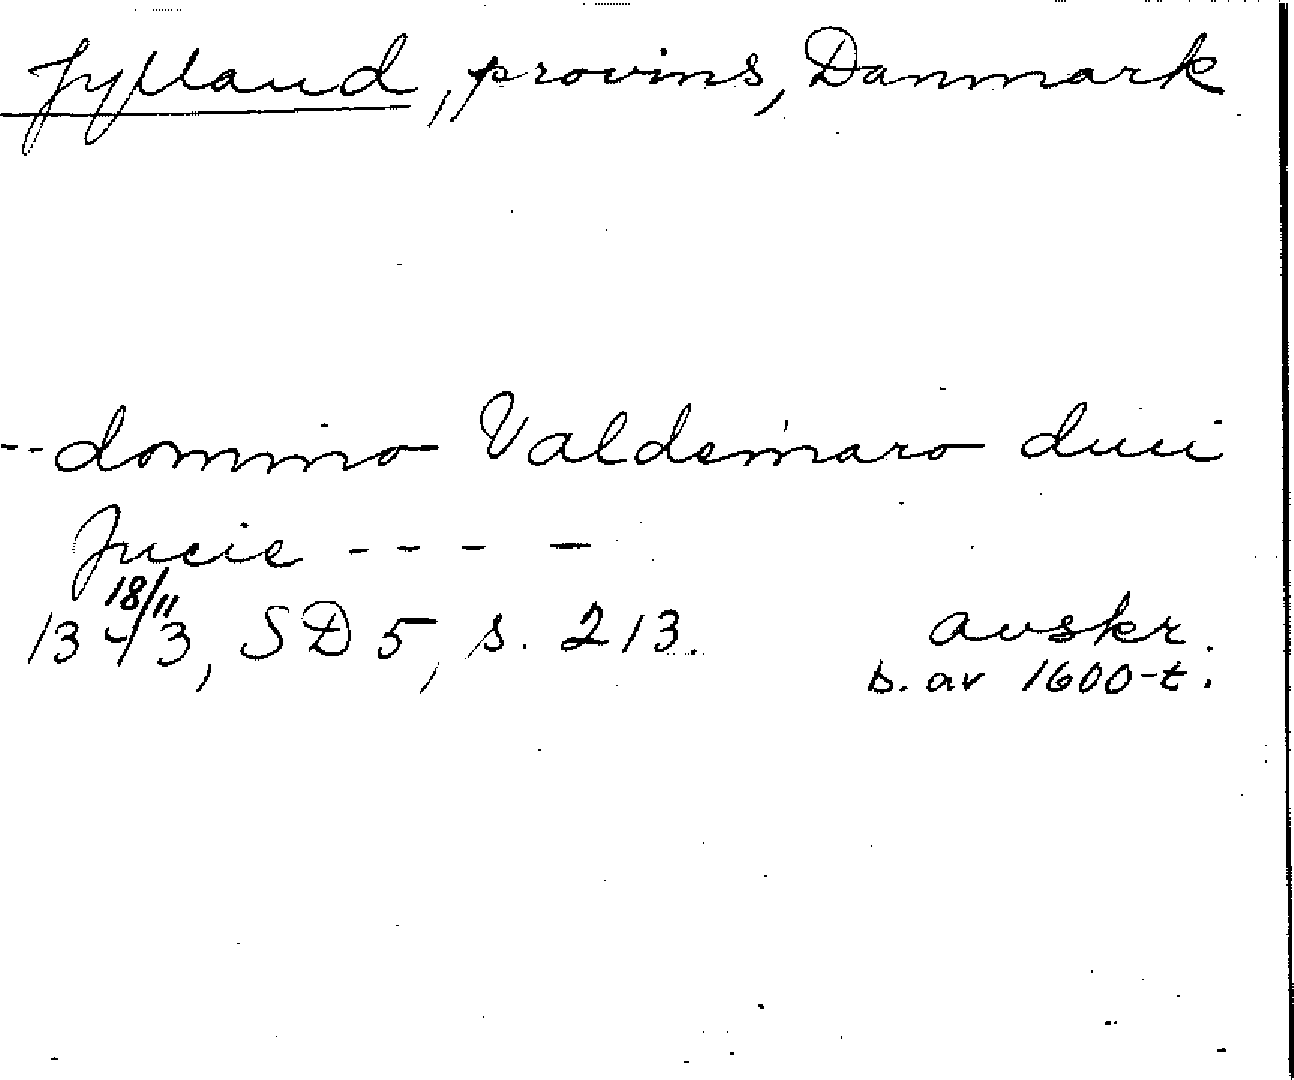 Jylland, provins, Danmark
-- domino Valdemaro duci
Jucie - - - -
18/11
1343, SD 5, s. 213. avskr.
b. av 1600-t.